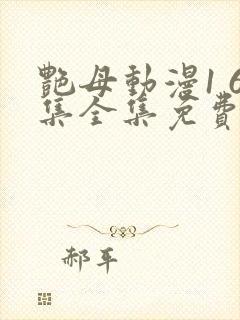 艷母動漫1 6
集全集免費
郝平